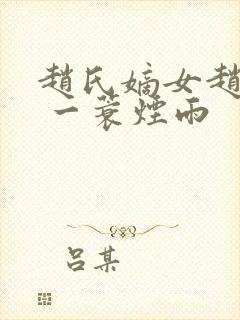 趙氏嫡女趙
一蓑煙雨
吕某